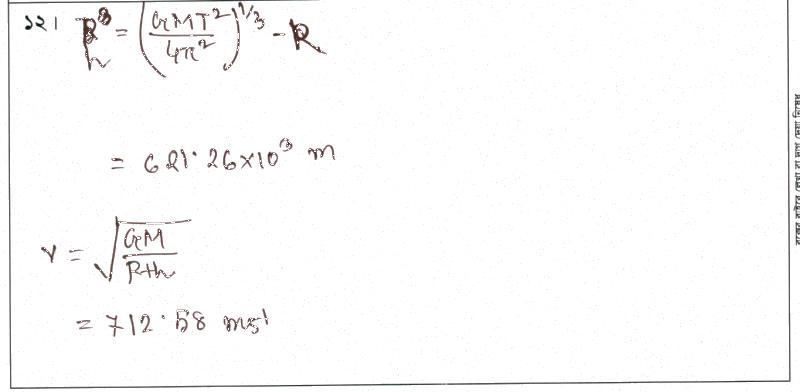 ১২। h = (GMT²/4π²)^1/3 - R
= 621.26×10³ m
v = √(GM/R+h)
= 712.58 ms⁻¹